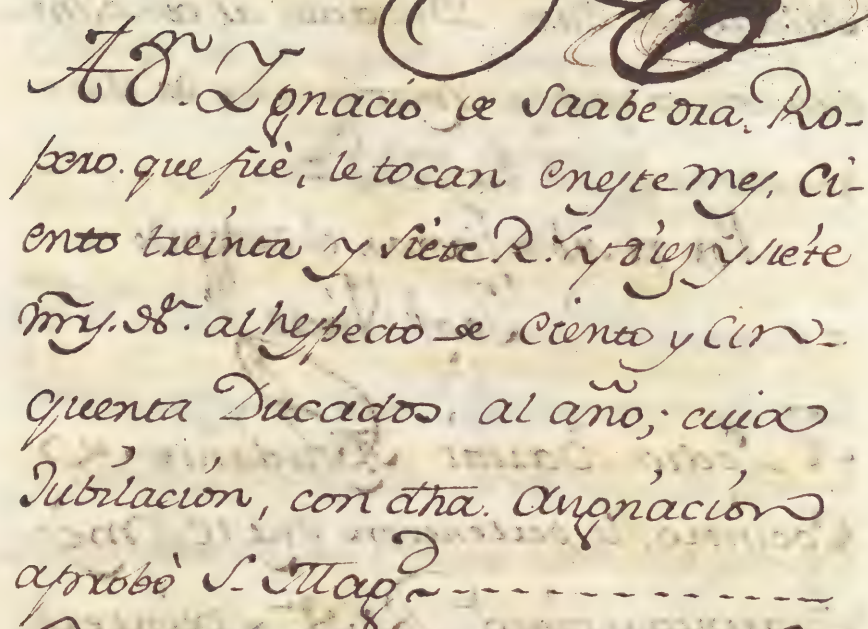 A Dn. Ygnacio de Saabedra, Ro-
pero. que fuè, le tocan en este mes, Ci-
ento treinta y siete Rs. y diez y siete
mrs. Vn. al respecto de Ciento y Cin-
quenta Ducados al año; cuia
Jubilación, con dha. Asignación
aprobò S. Magd